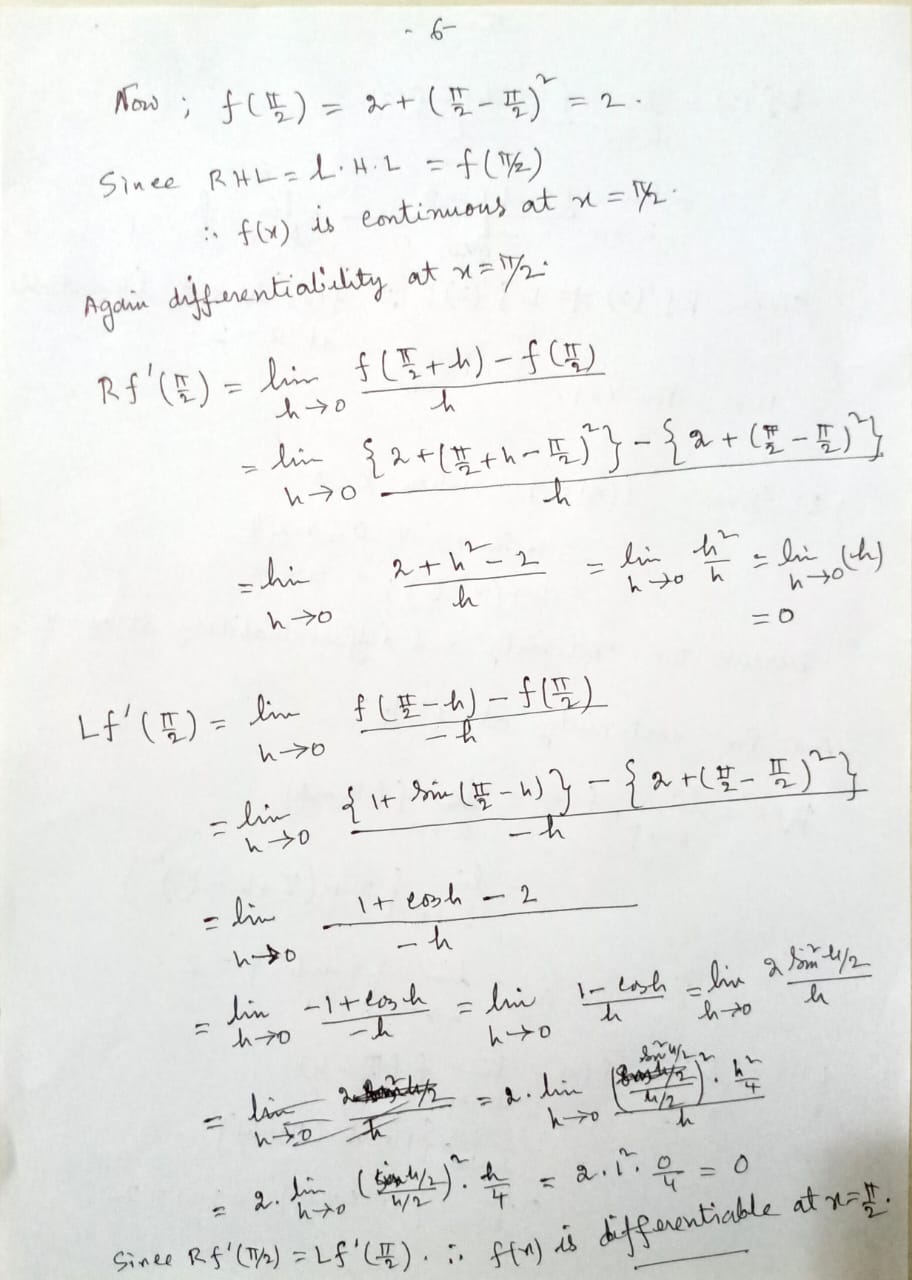 - 6 -
Now ; f(π/2) = 2 + (π/2 - π/2)² = 2.
Since RHL = L.H.L = f(π/2)
∴ f(x) is continuous at x = π/2.
Again differentiability at x = π/2.
Rf'(π/2) = lim h→0 f(π/2 + h) - f(π/2) / h
= lim h→0 {2 + (π/2 + h - π/2)²} - {2 + (π/2 - π/2)²} / h
= lim h→0 2 + h² - 2 / h = lim h→0 h²/h = lim h→0 (h)
= 0
Lf'(π/2) = lim h→0 f(π/2 - h) - f(π/2) / -h
= lim h→0 {1 + sin(π/2 - h)} - {2 + (π/2 - π/2)²} / -h
= lim h→0 1 + cosh - 2 / -h
= lim h→0 -1 + cosh / -h = lim h→0 1 - cosh / h = lim h→0 2 sin² h/2 / h
= 2. lim h→0 (sin h/2 / h/2)² . h²/4 / h
= 2. lim h→0 (sin h/2 / h/2)² . h/4 = 2.1². 0/4 = 0
Since Rf'(π/2) = Lf'(π/2). ∴ f(x) is differentiable at x = π/2.